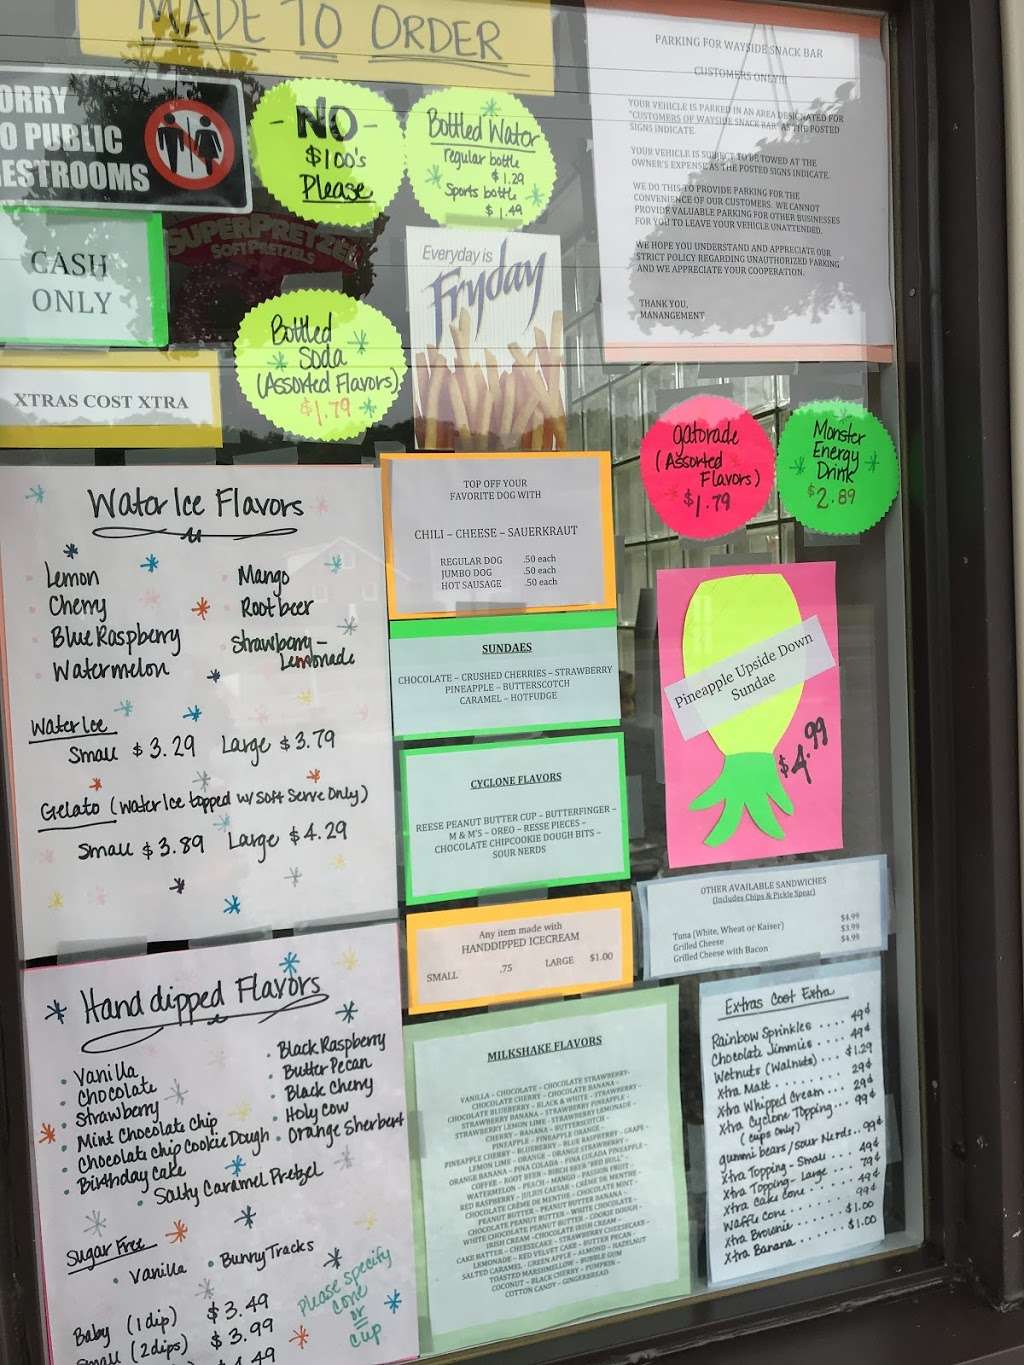 MADE TO ORDER
ORRY
O PUBLIC
RESTROOMS
- NO -
$100's
Please
Bottled Water
regular bottle
$1.29
Sports bottle
$1.49
PARKING FOR WAYSIDE SNACK BAR
CUSTOMERS ONLY!!!
YOUR VEHICLE IS PARKED IN AN AREA DESIGNATED FOR
"CUSTOMERS OF WAYSIDE SNACK BAR" AS THE POSTED
SIGNS INDICATE.
YOUR VEHICLE IS SUBJECT TO BE TOWED AT THE
OWNER'S EXPENSE AS THE POSTED SIGNS INDICATE.
WE DO THIS TO PROVIDE PARKING FOR THE
CONVENIENCE OF OUR CUSTOMERS. WE CANNOT
PROVIDE VALUABLE PARKING FOR OTHER BUSINESSES
FOR YOU TO LEAVE YOUR VEHICLE UNATTENDED.
WE HOPE YOU UNDERSTAND AND APPRECIATE OUR
STRICT POLICY REGARDING UNAUTHORIZED PARKING
AND WE APPRECIATE YOUR COOPERATION.
THANK YOU,
MANANGEMENT
SUPERPRETZEL
SOFT PRETZELS
CASH
ONLY
Everyday is
Fryday
Bottled
Soda
(Assorted Flavors)
$1.79
XTRAS COST XTRA
gatorade
(Assorted
Flavors)
$1.79
Monster
Energy
Drink
$2.89
Water Ice Flavors
Lemon
Cherry
Blue Raspberry
Watermelon
Mango
Rootbeer
Strawberry-
Lemonade
Water Ice
Small $3.29 Large $3.79
Gelato (Water Ice topped w/ Soft Serve Only)
Small $3.89 Large $4.29
TOP OFF YOUR
FAVORITE DOG WITH
CHILI – CHEESE – SAUERKRAUT
REGULAR DOG .50 each
JUMBO DOG .50 each
HOT SAUSAGE .50 each
SUNDAES
CHOCOLATE – CRUSHED CHERRIES – STRAWBERRY
PINEAPPLE – BUTTERSCOTCH
CARAMEL – HOTFUDGE
CYCLONE FLAVORS
REESE PEANUT BUTTER CUP – BUTTERFINGER –
M & M'S – OREO – RESSE PIECES –
CHOCOLATE CHIPCOOKIE DOUGH BITS –
SOUR NERDS
Pineapple Upside Down
Sundae
$4.99
Any item made with
HANDDIPPED ICECREAM
SMALL .75 LARGE $1.00
OTHER AVAILABLE SANDWICHES
(Includes Chips & Pickle Spear)
Tuna (White, Wheat or Kaiser) $4.99
Grilled Cheese $3.99
Grilled Cheese with Bacon $4.99
Hand dipped Flavors
Vanilla
Chocolate
Strawberry
Mint Chocolate Chip
Chocolate Chip Cookie Dough
Birthday Cake
Black Raspberry
Butter Pecan
Black Cherry
Holy Cow
Orange Sherbert
Salty Caramel Pretzel
Sugar Free
Vanilla
Bunny Tracks
Baby (1 dip) $3.49
Small (2 dips) $3.99
4.49
Please specify
cone
or
cup
MILKSHAKE FLAVORS
VANILLA – CHOCOLATE – CHOCOLATE STRAWBERRY-
CHOCOLATE CHERRY – CHOCOLATE BANANA –
CHOCOLATE BLUEBERRY – BLACK & WHITE – STRAWBERRY –
STRAWBERRY BANANA – STRAWBERRY PINEAPPLE –
STRAWBERRY LEMON LIME – STRAWBERRY LEMONADE –
CHERRY – BANANA – BUTTERSCOTCH –
PINEAPPLE – PINEAPPLE ORANGE –
PINEAPPLE CHERRY – BLUEBERRY – BLUE RASPBERRY – GRAPE –
LEMON LIME – ORANGE – ORANGE STRAWBERRY –
ORANGE BANANA – PINA COLADA – PINA COLADA PINEAPPLE –
COFFEE – ROOT BEER – BIRCH BEER "RED BULL" –
WATERMELON – PEACH – MANGO – PASSION FRUIT –
RED RASPBERRY – JULIUS CAESAR – CRÈME DE MENTHE –
CHOCOLATE CRÈME DE MENTHE – CHOCOLATE MINT –
PEANUT BUTTER – PEANUT BUTTER BANANA –
CHOCOLATE PEANUT BUTTER – WHITE CHOCOLATE –
WHITE CHOCOLATE PEANUT BUTTER – COOKIE DOUGH –
IRISH CREAM – CHOCOLATE IRISH CREAM –
CAKE BATTER – CHEESECAKE – STRAWBERRY CHEESECAKE –
LEMONADE – RED VELVET CAKE – BUTTER PECAN –
SALTED CARAMEL – GREEN APPLE – ALMOND – HAZELNUT
TOASTED MARSHMELLOW – BUBBLE GUM
COCONUT – BLACK CHERRY – PUMPKIN –
COTTON CANDY – GINGERBREAD
Extras Cost Extra
Rainbow Sprinkles .... 49¢
Chocolate Jimmies ... 49¢
Wetnuts (Walnuts) ... $1.29
Xtra Malt ........ 29¢
Xtra Whipped Cream .... 29¢
Xtra Cyclone Topping ... 99¢
(cups only)
gummi bears/sour Nerds .. 99¢
Xtra Topping - Small ... 49¢
Xtra Topping - Large ... 79¢
Xtra Cake Cone ...... 49¢
Waffle Cone ....... 99¢
Xtra Brownie ...... $1.00
Xtra Banana ....... $1.00